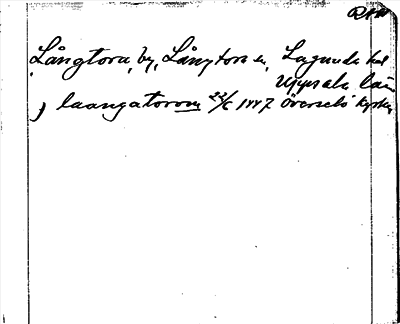 Långtora, by, Långtora sn, Lagunda hd
Uppsala län
j laangatorom 22/6 1447 Översels kyrka